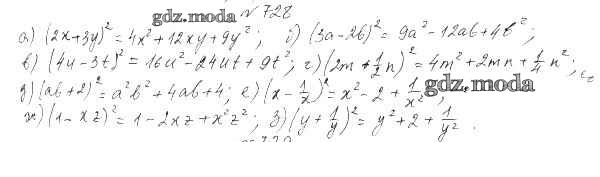 gdz.moda № 728
а) (2x+3y)² = 4x² + 12xy + 9y²; б) (3a-2b)² = 9a² - 12ab + 4b²;
в) (4u-3t)² = 16u² - 24ut + 9t²; г) (2m + 1/2 n)² = 4m² + 2mn + 1/4 n²;
д) (ab+2)² = a²b² + 4ab + 4; е) (x - 1/x)² = x² - 2 + 1/x²; gdz.moda
ж) (1 - xz)² = 1 - 2xz + x²z²; з) (y + 1/y)² = y² + 2 + 1/y².